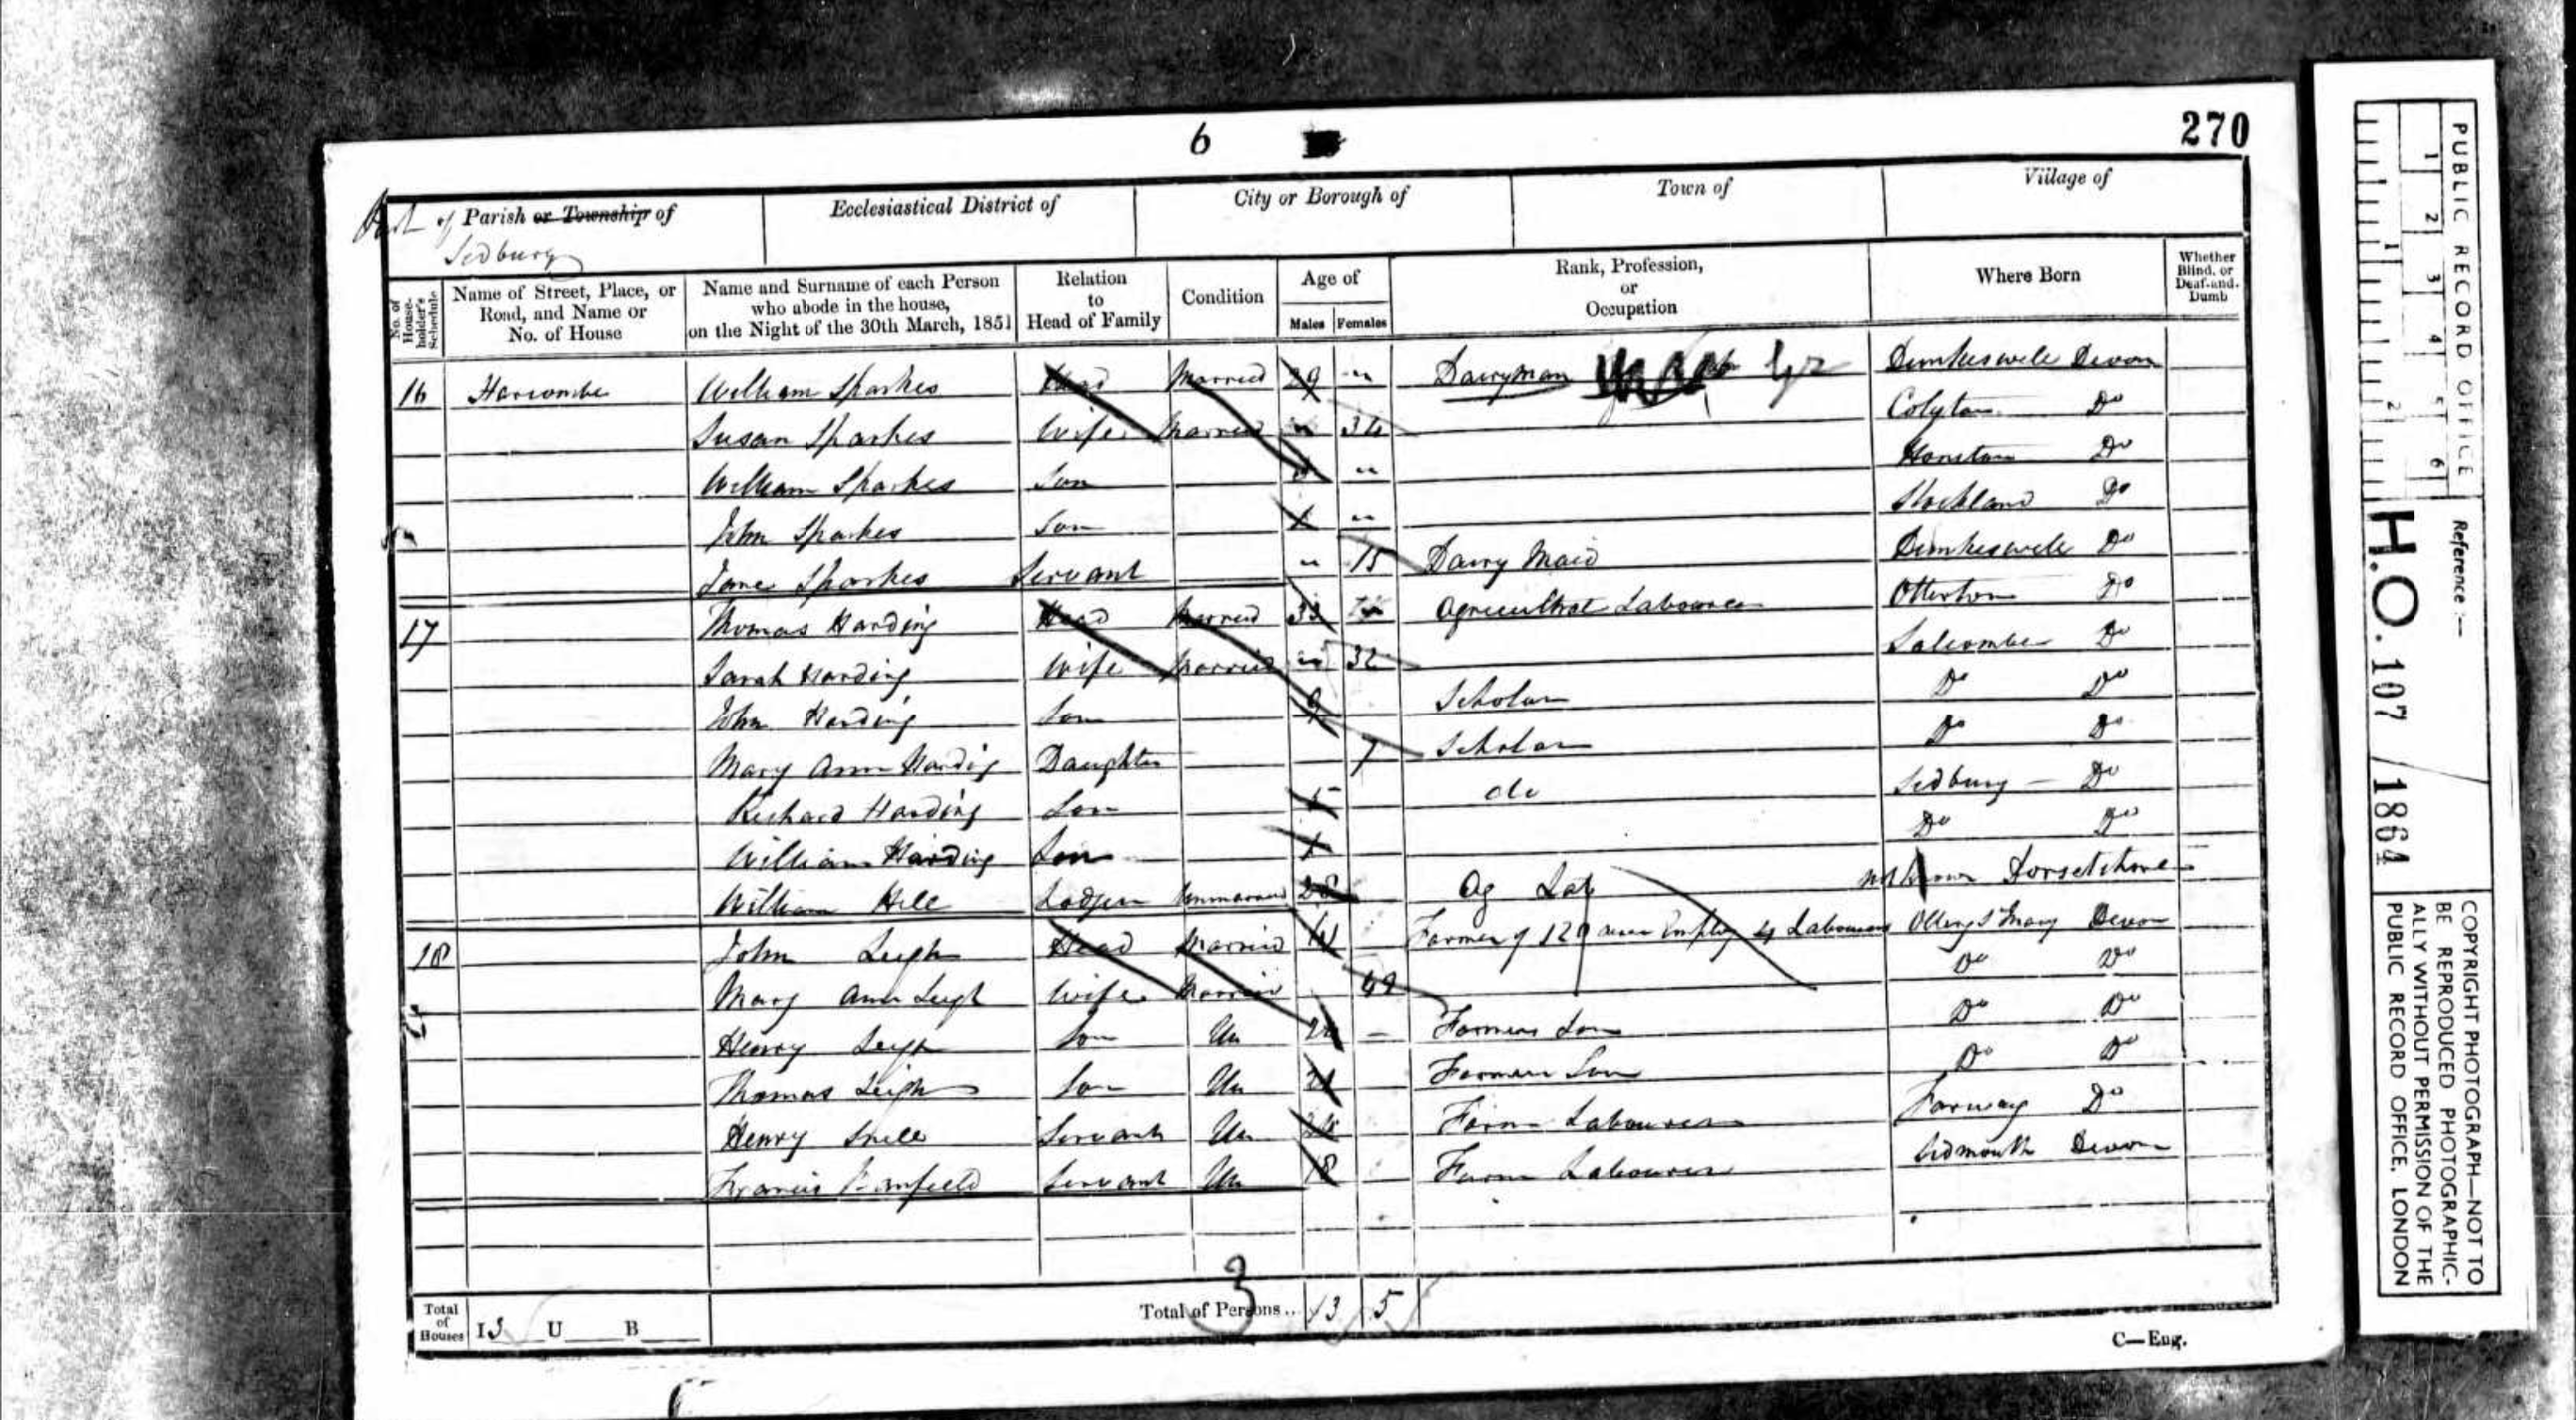 6
270
Part of Parish or Township of
Sidbury
Ecclesiastical District of
City or Borough of
Town of
Village of
No. of House-holder's Schedule
Name of Street, Place, or Road, and Name or No. of House
Name and Surname of each Person who abode in the house, on the Night of the 30th March, 1851
Relation to Head of Family
Condition
Age of
Males Females
Rank, Profession, or Occupation
Where Born
Whether Blind, or Deaf-and-Dumb
16 Harcombe William Sparkes Head Married 29 Dairyman Dunkeswele Devon
Susan Sparkes Wife Married Colyton Do
William Sparkes Son Honiton Do
John Sparkes Son Stockland Do
Jane Sparkes Servant 15 Dairy Maid Dunkeswele Do
17 Thomas Harding Head Married 33 Agricultral Labourer Otterton Do
Sarah Harding Wife Married 32 Salcombe Do
John Harding Son 9 Scholar Do Do
Mary Ann Hardig Daughter 7 Scholar Do Do
Richard Harding Son 5 do Sidbury Do
William Harding Son 1 Do Do
William Hill Lodger Unmarried 28 Ag Lab not known Dorsetshire
18 John Leigh Head Married Farmer of 120 acres Employ 4 Labourers Ottery St Mary Devon
Mary Ann Leigh Wife Married 49 Do Do
Henry Leigh Son Un Farmers Son Do Do
Thomas Leigh Son Un 21 Farmers Son Do Do
Henry Servant Un Farm Labourer Farway Do
Francis Servant Un 18 Farm Labourer Sidmouth Devon
3
Total of Houses I 3 U B
Total of Persons... 13 5
C—Eng.
PUBLIC RECORD OFFICE
1 2 3 4 5 6
1 2
Reference :—
H.O. 107 / 1864
COPYRIGHT PHOTOGRAPH—NOT TO
BE REPRODUCED PHOTOGRAPHIC-
ALLY WITHOUT PERMISSION OF THE
PUBLIC RECORD OFFICE, LONDON